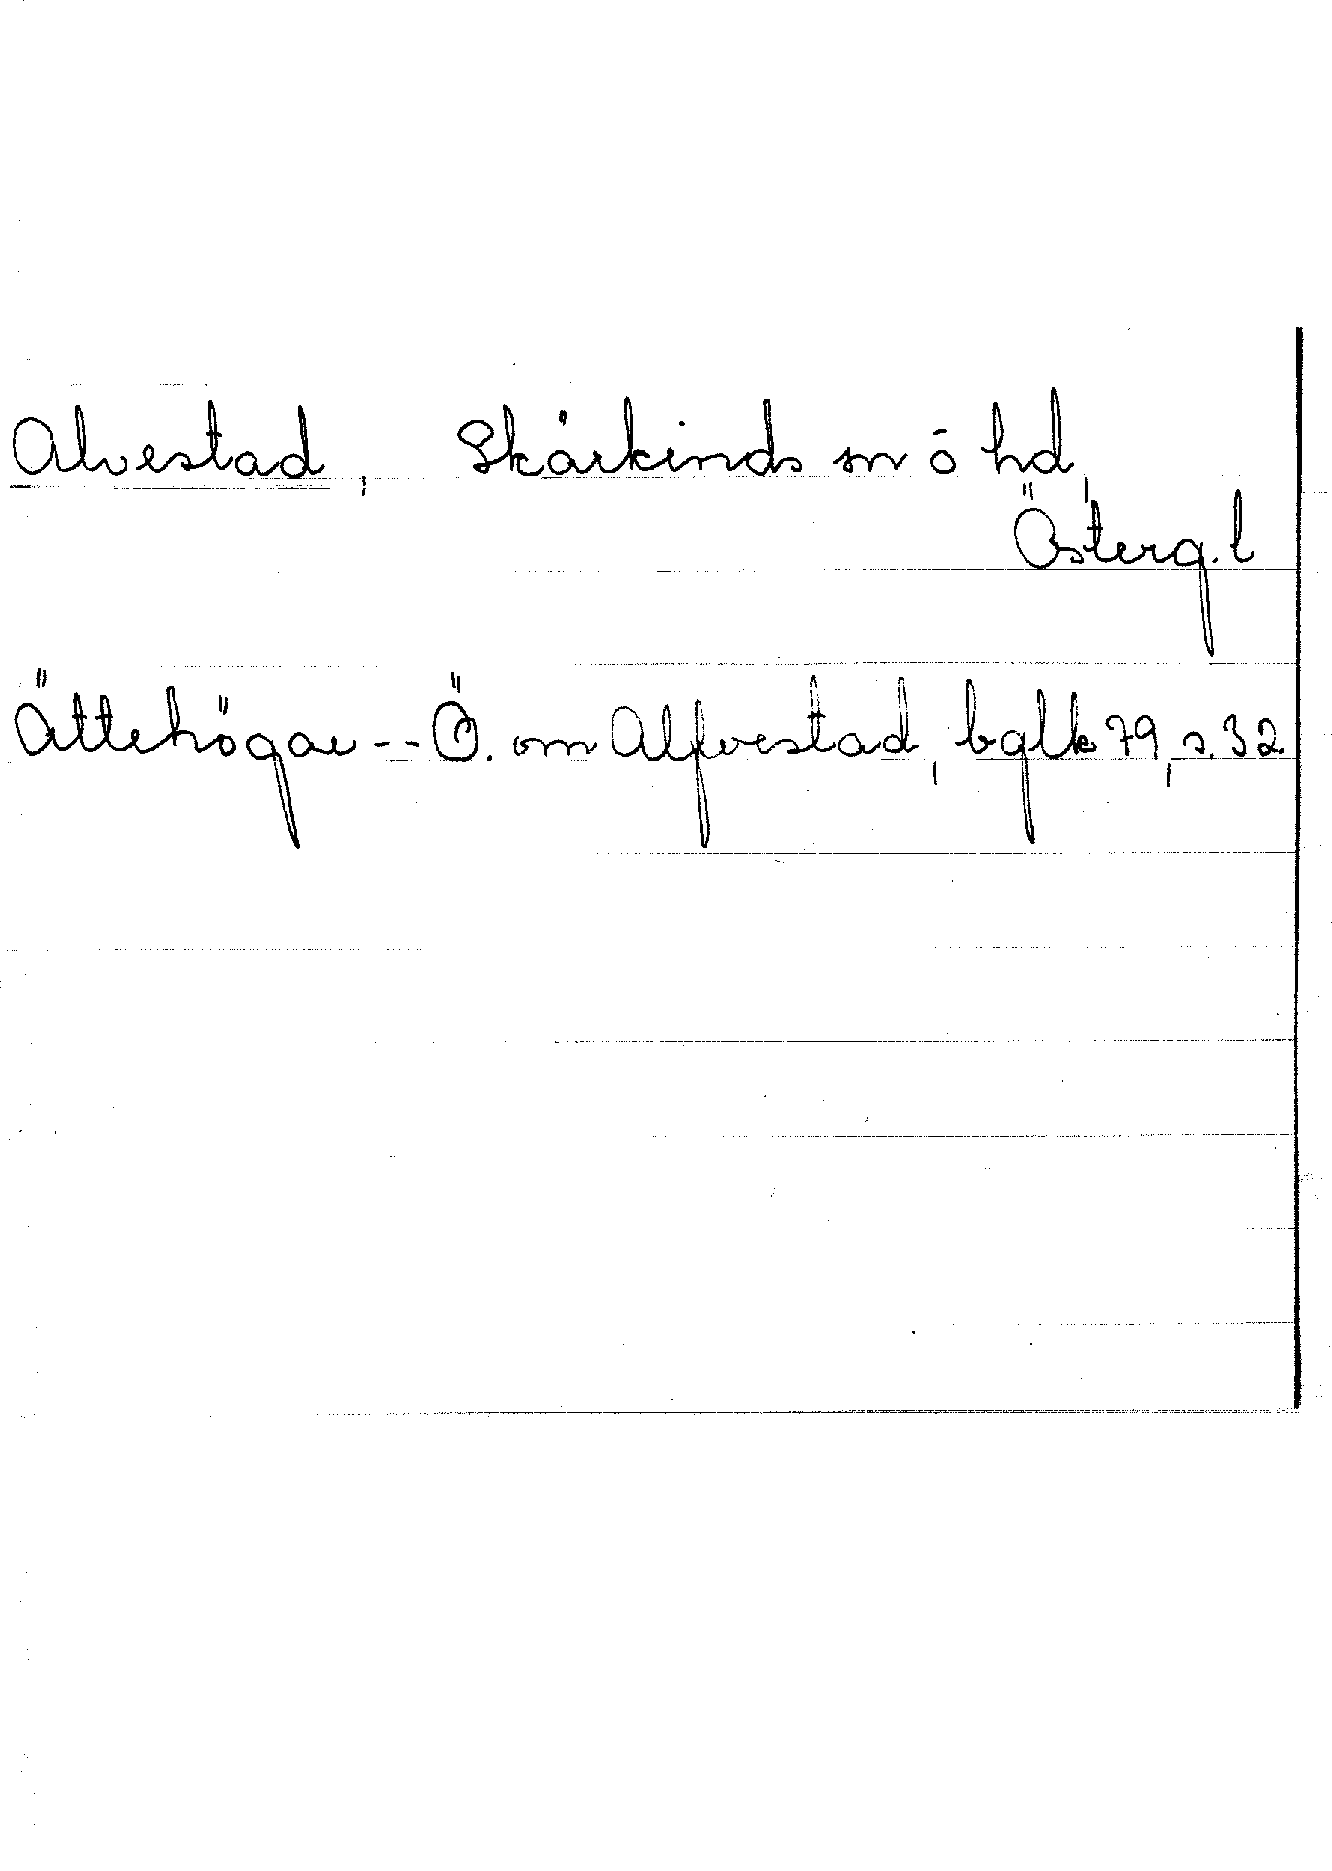 Alvestad, Skärkinds sn o hd,
Österg. l
Ättehögar -- Ö. om Alfvestad, bglk 79, s. 32